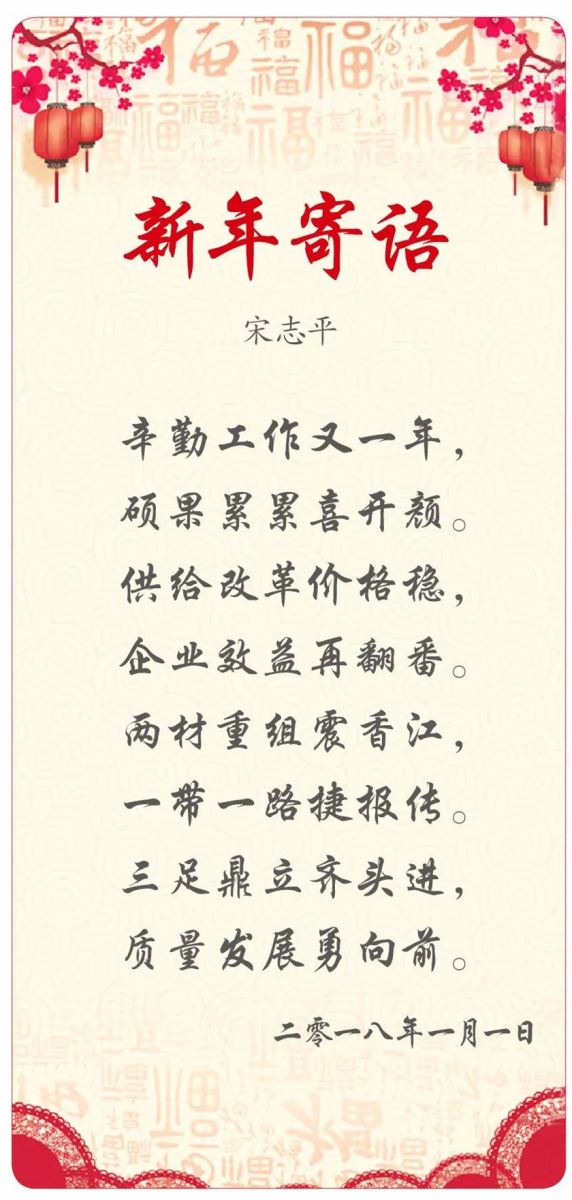 新年寄语
宋志平
辛勤工作又一年，
硕果累累喜开颜。
供给改革价格稳，
企业效益再翻番。
两材重组震香江，
一带一路捷报传。
三足鼎立齐头进，
质量发展勇向前。
二零一八年一月一日